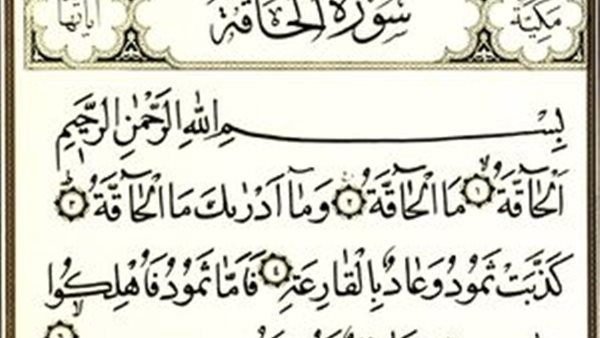 مكية سورة الحاقة آياتها
بِسْمِ اللهِ الرَّحْمٰنِ الرَّحِيمِ
اَلْحَآقَّةُ ۙ﴿١﴾ مَا الْحَآقَّةُ ﴿٢﴾ وَمَآ اَدْرٰىكَ مَا الْحَآقَّةُ ﴿٣﴾
كَذَّبَتْ ثَمُودُ وَعَادٌ بِالْقَارِعَةِ ﴿٤﴾ فَاَمَّا ثَمُودُ فَاُهْلِكُوا